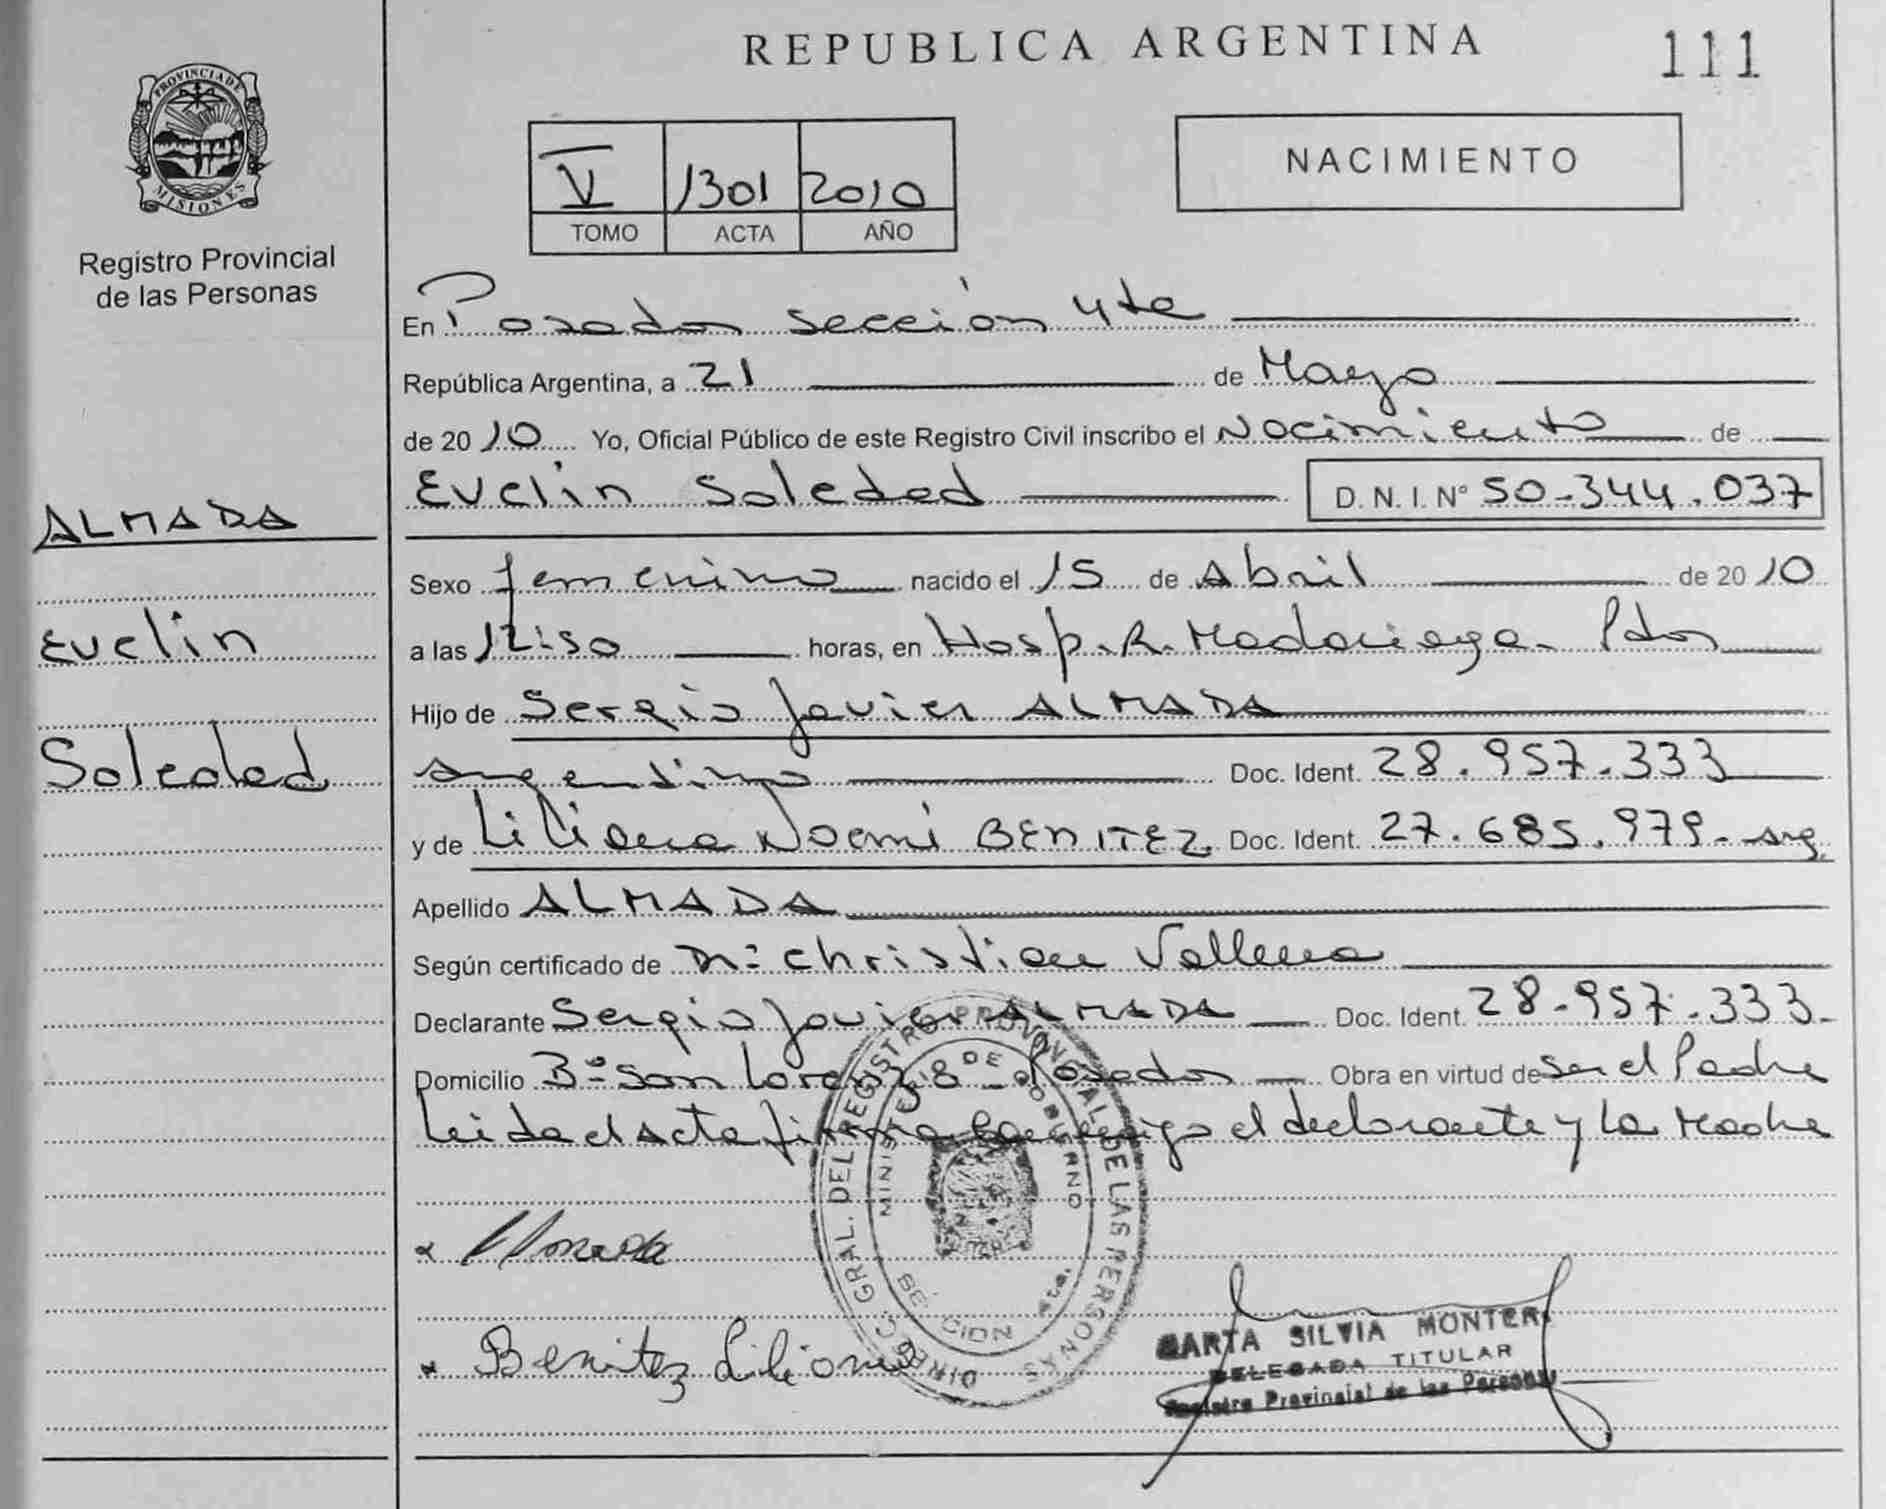 REPUBLICA ARGENTINA
111
PROVINCIA DE MISIONES
Registro Provincial
de las Personas
V 1301 2010
TOMO ACTA AÑO
NACIMIENTO
En Posadas sección 4ta
República Argentina, a 21 de Mayo
de 2010 Yo, Oficial Público de este Registro Civil inscribo el Nacimiento de
Evelin Soledad D.N.I. Nº 50.344.037
ALMADA
Evelin
Soledad
Sexo femenino nacido el 15 de Abril de 2010
a las 12:50 horas, en Hosp. R. Madariaga - Pdas
Hijo de Sergio Javier ALMADA
argentino Doc. Ident. 28.957.333
y de Liliana Noemí BENITEZ Doc. Ident. 27.685.979 - arg.
Apellido ALMADA
Según certificado de Dr. Christian
Declarante Sergio Javier ALMADA Doc. Ident. 28.957.333
Domicilio Bº San Lorenzo - Posadas Obra en virtud de ser el Padre
Leida el Acta firma conmigo el declarante y la Madre
Almada
Benitez Liliana
DIREC. GRAL. DEL REGISTRO PROVINCIAL DE LAS PERSONAS
MINISTERIO DE GOBIERNO
SECCION 4ta.
MARTA SILVIA
DELEGADA TITULAR
Registro Provincial de las Personas